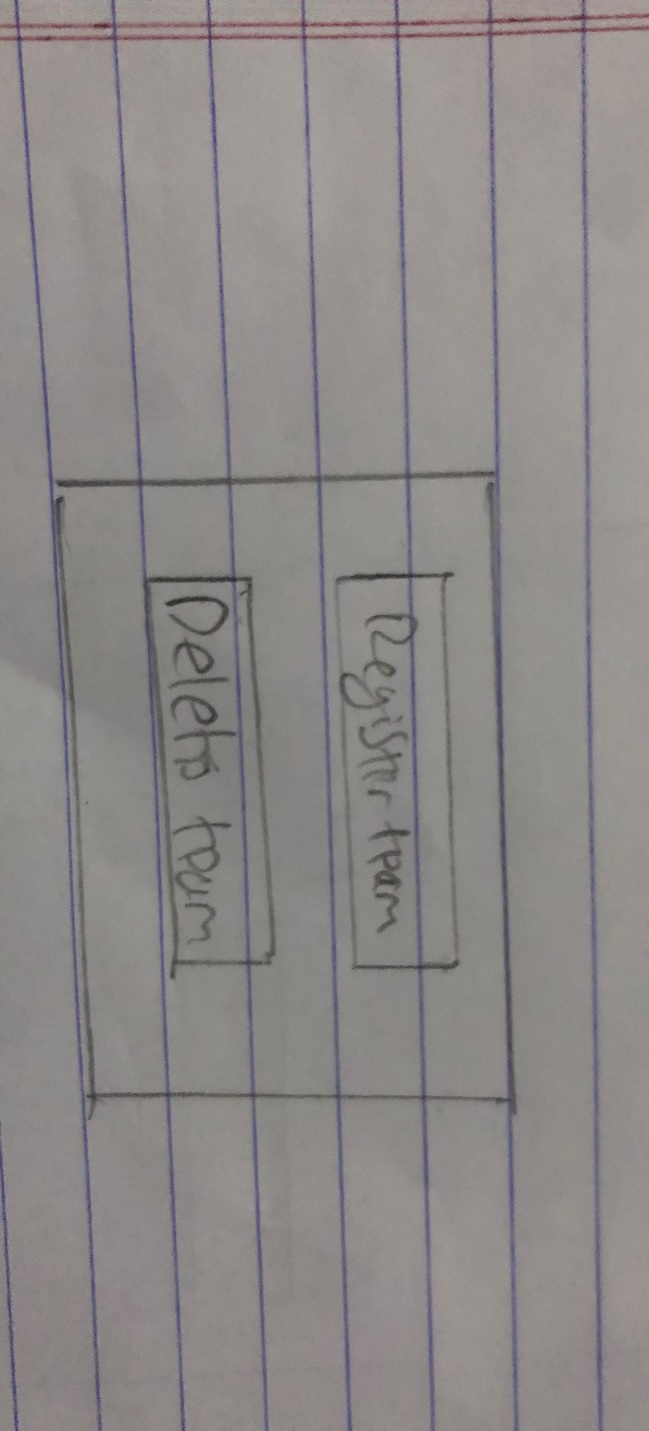 Register team
Delete team